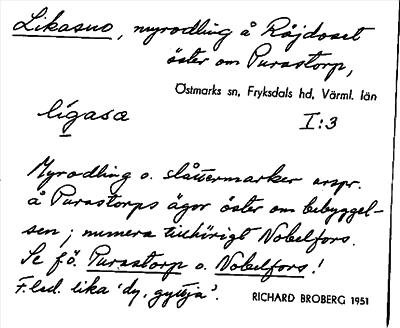 Likasuo, myrodling å Röjdoset
öster om Purastorp,
Östmarks sn, Fryksdals hd, Värml. län
lígasα I:3
Myrodling o. slåttermarker urspr.
å Purastorps ägor öster om bebyggel-
sen; numera tillhörigt Nobelfors.
Se f.ö. Purastorp o. Nobelfors!
F. lad. lika 'dy, gyttja'.
RICHARD BROBERG 1951